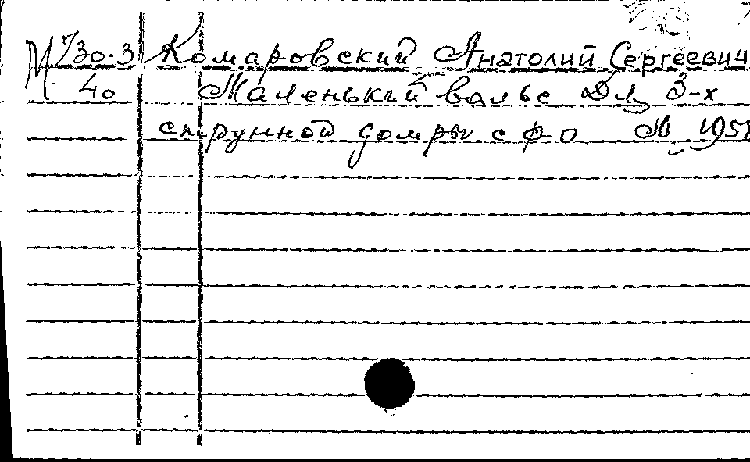 М 730.3 Комаровский Анатолий Сергеевич
40 Маленький вальс Для 3-х
струнной домры с ф-о М 1951